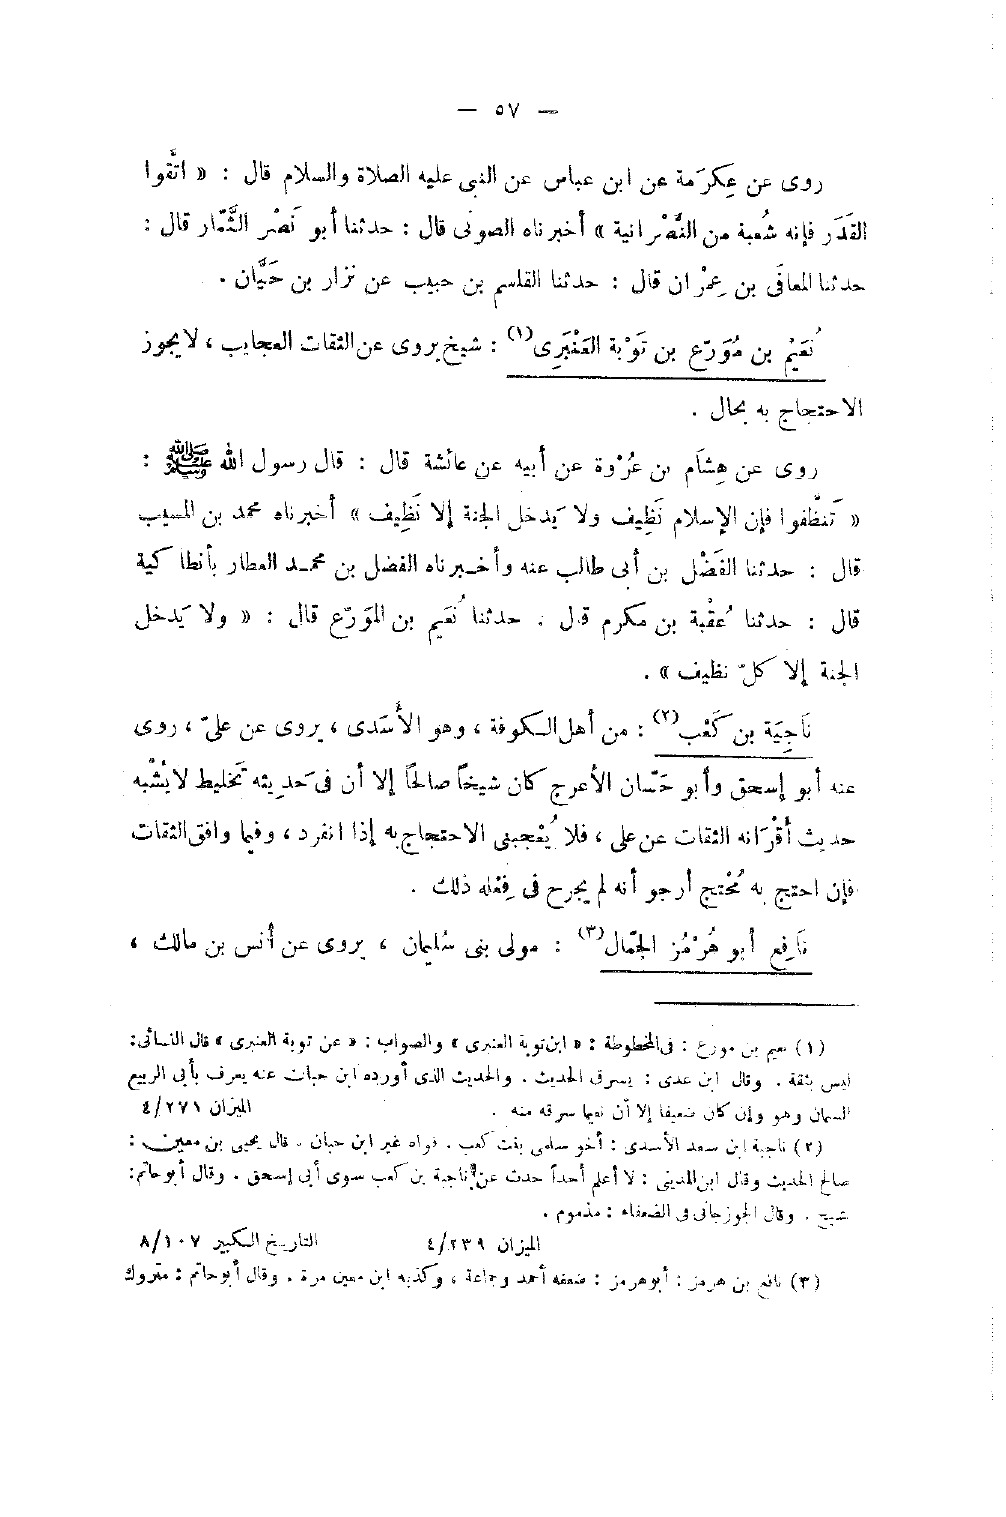 — ٥٧ —
روى عن عِكرَمة عن ابن عباس عن النبى عليه الصلاة والسلام قال : « اتَّقوا
القَدَر فإنه شُعبة من النَّصْرانية » أخبرناه الصوفى قال : حدثنا أبو نَصْر التَّمّار قال :
حدثنا المعافَى بن عِمْران قال : حدثنا القاسم بن حبيب عن نزار بن حَيَّان .
نُعَيْم بن مُوَرّع بن تَوْبة العَنْبَرِى(١) : شيخ يروى عن الثقات العجايب ، لا يجوز
الاحتجاج به بحال .
روى عن هِشَام بن عُرْوة عن أبيه عن عائشة قال : قال رسول الله ﷺ :
« تَنظّفوا فإن الإسلام نَظِيف ولا يَدخل الجنة إلا نَظِيف » أخبرناه محمد بن المسيب
قال : حدثنا الفَضْل بن أبى طالب عنه وأخبرناه الفضل بن محمد العطار بأنطاكية
قال : حدثنا عُقْبة بن مكرم قال : حدثنا نُعَيم بن المَوَرّع قال : « ولا يَدخل
الجنة إلا كلّ نظيف » .
نَاجِيَة بن كَعْب(٢) : من أهل الكوفة ، وهو الأَسَدى ، يروى عن علىّ ، روى
عنه أبو إسحق وأبو حَسّان الأعرج كان شيخاً صالحًا إلا أن فى حَديِثه تَخليط لا يُشْبه
حديث أقْرَانه الثقات عن على ، فلا يُعْجبنى الاحتجاج به إذا انفرد ، وفيما وافق الثقات
فإن احتج به مُحْتج أرجو أنه لم يجرح فى فِعْله ذلك .
نَافِع أبو هُرْمُز الجَمّال(٣) : مولى بنى سُليمان ، يروى عن أنس بن مالك ،
(١) نعيم بن مورع : فى المخطوطة : « ابن توبة العنبرى » والصواب : « عن توبة العنبرى » قال النسائى :
ليس بثقة . وقال ابن عدى : يسرق الحديث . والحديث الذى أورده ابن حبان عنه يعرف بأبى الربيع
السمان وهو وإن كان ضعيفا إلا أن نعيما سرقه منه . الميزان ٤/٢٧١
(٢) ناجية ابن سعد الأسدى : أخو سلمى بنت كعب . قواه غير ابن حبان . قال يحيى بن معين :
صالح الحديث وقال ابن المدينى : لا أعلم أحداً حدث عن ناجية بن كعب سوى أبى إسحق . وقال أبو حاتم :
شيخ . وقال الجوزجانى فى الضعفاء : مذموم .
الميزان ٤/٢٣٩ التاريخ الكبير ٨/١٠٧
(٣) نافع بن هرمز : أبو هرمز : ضعفه أحمد وجماعة ، وكذبه ابن معين مرة . وقال أبو حاتم : متروك